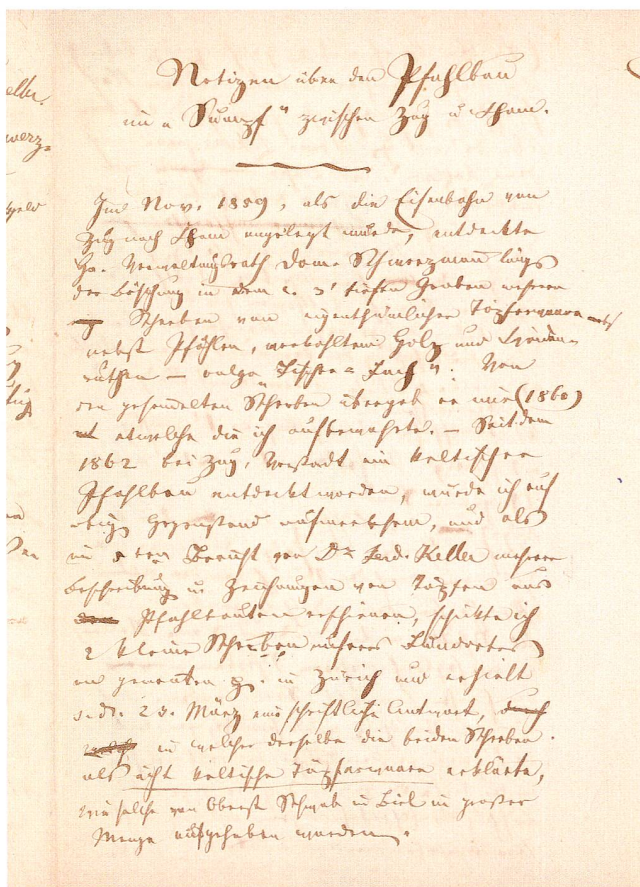 Notizen über den Pfahlbau
im „Sumpf“ zwischen Zug u Cham.
Im Nov. 1859, als die Eisenbahn von
Zug nach Cham angelegt wurde, entdeckte
Hr. Verwaltungsrath Dom. Schwerzmann längs
der Böschung in dem c. 3' tiefen Graben mehrere
Scherben von eigenthümlicher Töpferwaare
nebst Pfählen, verkohltem Holz und
ruthen — vulgo „Fischer = Fach“. Von
den gesammelten Scherben übergab er mir (1860)
etwelche die ich aufbewahrte. — Seitdem
1862 bei Zug, Vorstadt ein keltischer
Pfahlbau entdeckt worden, wurde ich auf
obig. Gegenstand aufmerksam, und als
im 5ten Bericht von Dr Ferd. Keller mehrere
Beschreibung u Zeichnungen von Töpfen aus
Pfahlbauten erschienen, schickte ich
2 kleine Scherben unseres Fundortes
an genannten H. in Zürich und erhielt
s. d. 23. März eine schriftliche Antwort,
in welcher derselbe die beiden Scherben
als ächt keltische Töpferwaare erklärte,
wie solche von Oberst Schwab in Biel in großer
Menge aufgehoben worden.